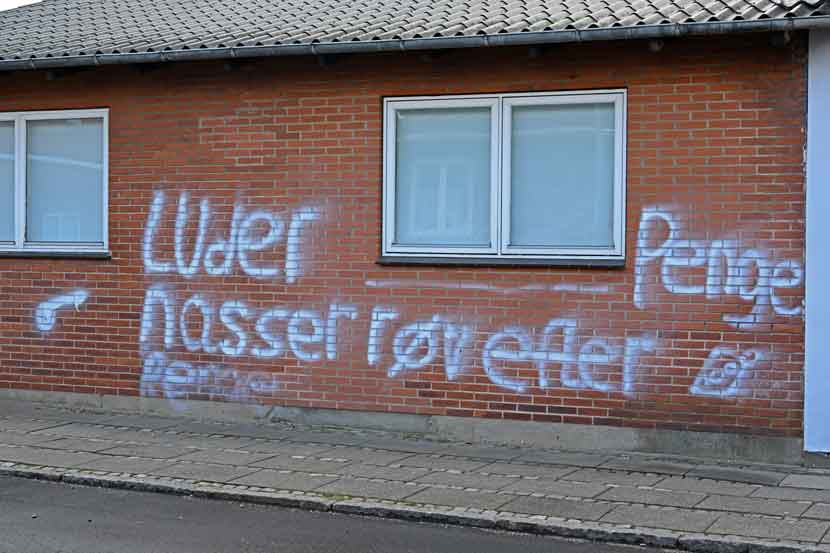 Luder
Penge
nasser røv efter
Penge